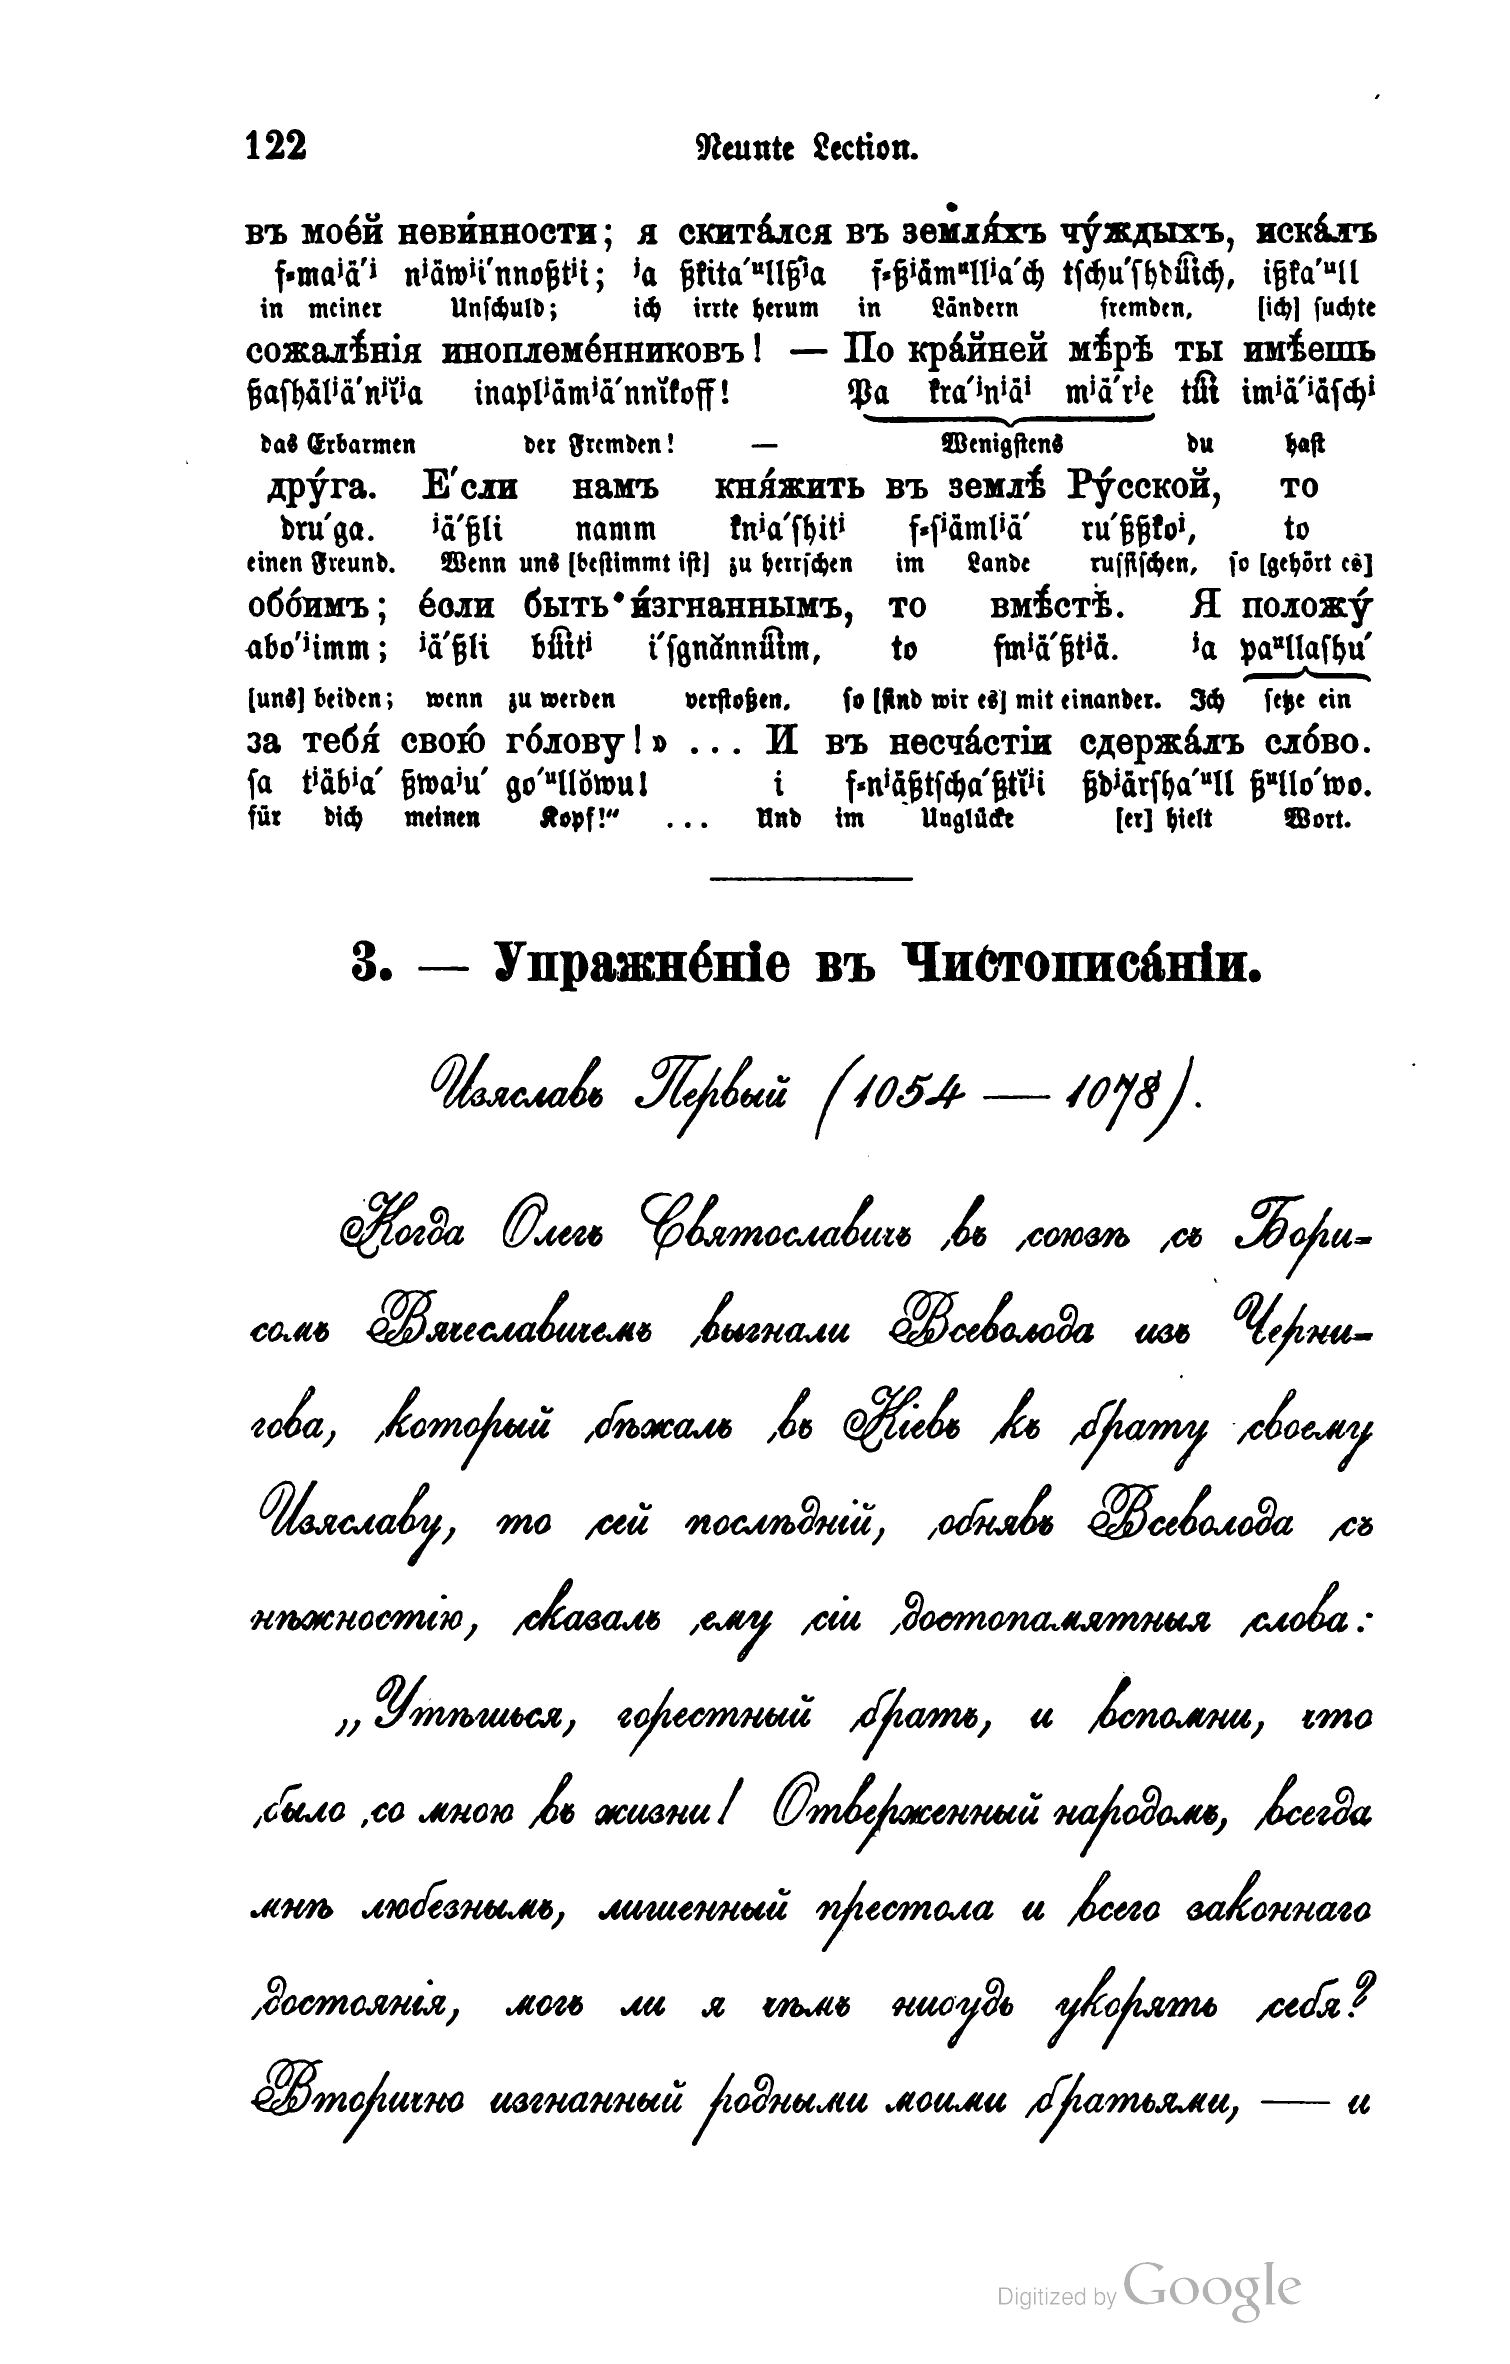 122 Neunte Lection.
въ мое́й неви́нности; я скита́лся въ земля́хъ чу́ждыхъ, иска́лъ
f=maⁱä′ⁱ nⁱäwⁱi′nnoßtⁱi; ⁱa ßkita′ᵘllßⁱa f=ßⁱämᵘllⁱa′ch tschu′shdŭich, ißka′ᵘll
in meiner Unschuld; ich irrte herum in Ländern fremden, [ich] suchte
сожалѣ́нія иноплеме́нниковъ! — По кра́йней мѣ́рѣ ты имѣ́ешь
ßashălⁱä′nⁱĭⁱa inaplⁱämⁱä′nnĭkoff! Pa kra′ⁱnⁱäⁱ mⁱä′rⁱe tŭi imⁱä′ⁱäschⁱ
das Erbarmen der Fremden! — Wenigstens du hast
дру́га. Е́сли намъ кня́жить въ землѣ́ Ру́сской, то
dru′ga. ⁱä′ßli namm knⁱa′shitⁱ f=sⁱämlⁱä′ ru′ßßkoⁱ, to
einen Freund. Wenn uns [bestimmt ist] zu herrschen im Lande russischen, so [gehört es]
обо́имъ; е́сли быть и́згнаннымъ, то вмѣ́стѣ. Я положу́
abo′ⁱimm; ⁱä′ßli bŭitⁱ i′sgnănnŭim, to fmⁱä′ßtⁱä. ⁱa paᵘllashu′
[uns] beiden; wenn zu werden verstoßen, so [sind wir es] mit einander. Ich setze ein
за тебя́ свою́ го́лову!» ... И въ несча́стіи сдержа́лъ сло́во.
sa tⁱäbⁱa′ ßwaⁱu′ go′ᵘllŏwu! i f=nⁱäßtscha′ßtĭⁱi ßdⁱärsha′ᵘll ßᵘllo′wo.
für dich meinen Kopf!“ ... Und im Unglücke [er] hielt Wort.
3. — Упражне́ніе въ Чистописа́ніи.
Изяславъ Первый (1054 — 1078).
Когда Олегъ Святославичъ въ союзѣ съ Бори=
сомъ Вячеславичемъ выгнали Всеволода изъ Черни=
гова, который бѣжалъ въ Кіевъ къ брату своему
Изяславу, то сей послѣдній, обнявъ Всеволода съ
нѣжностію, сказалъ ему сіи достопамятныя слова:
„Утѣшься, горестный братъ, и вспомни, что
было со мною въ жизни! Отверженный народомъ, всегда
мнѣ любезнымъ, лишенный престола и всего законнаго
достоянія, могъ ли я чѣмъ нибудь укорять себя?
Вторично изгнанный родными моими братьями, — и
Digitized by Google